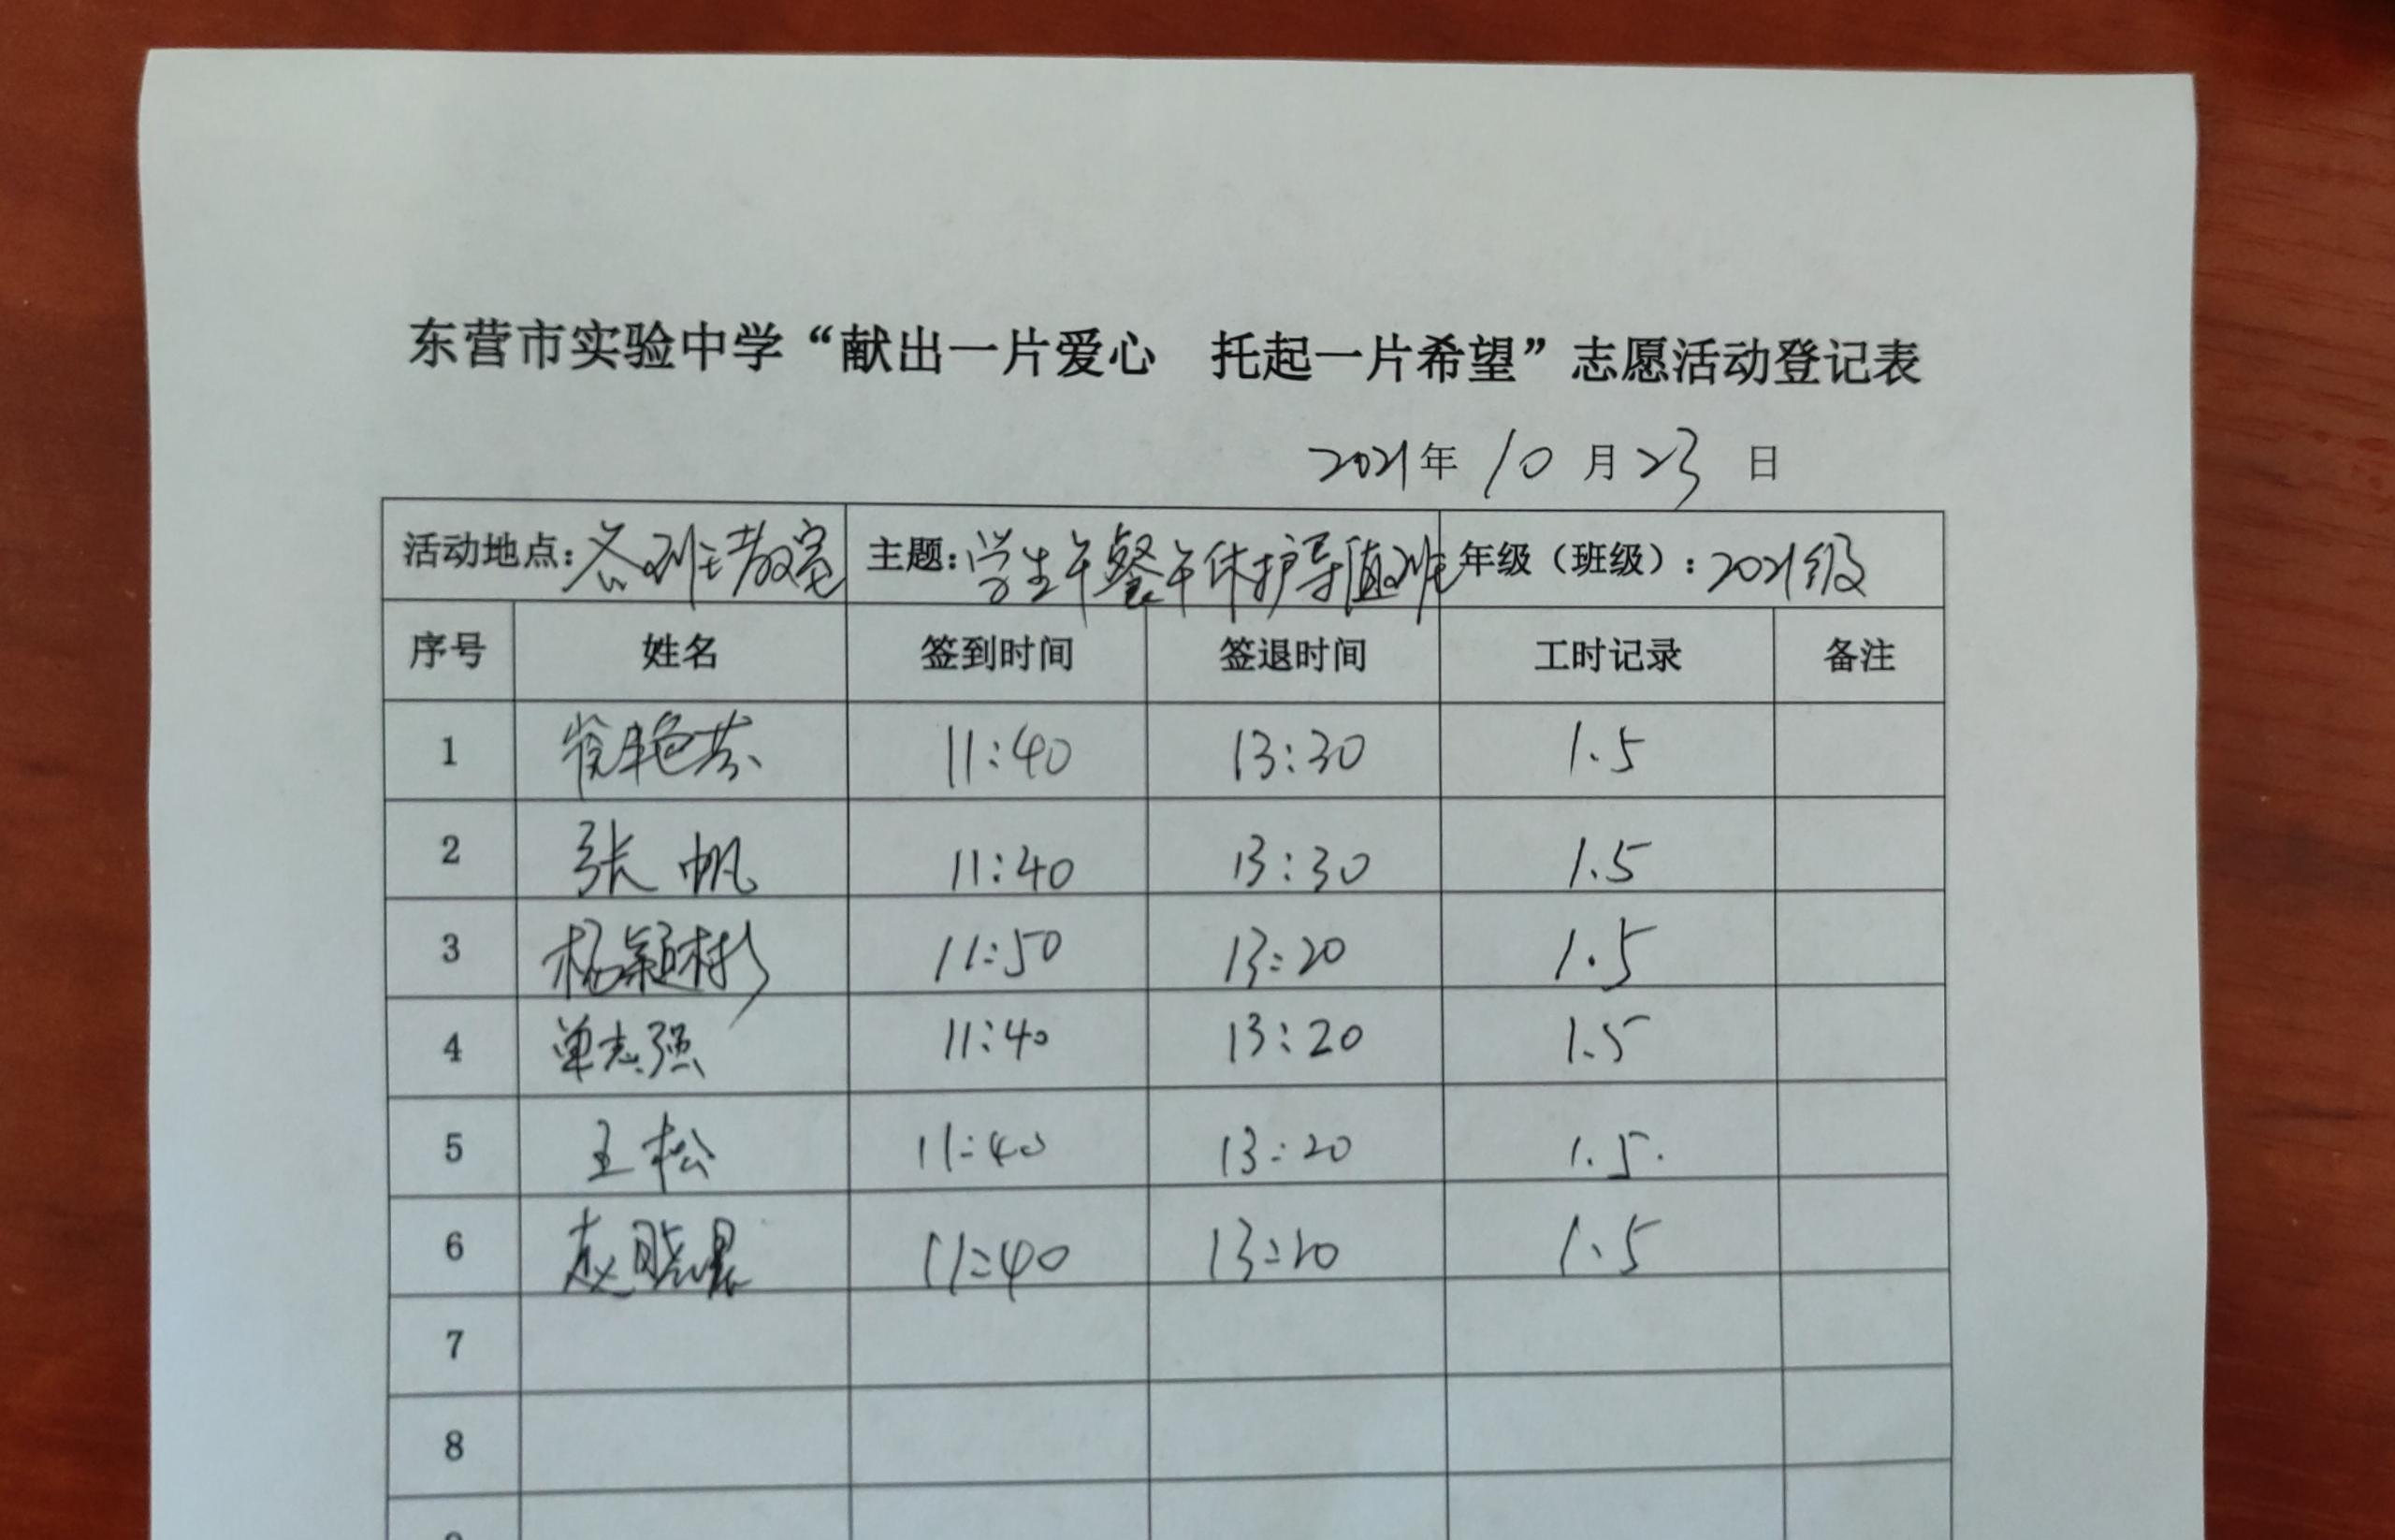 东营市实验中学“献出一片爱心 托起一片希望”志愿活动登记表
2021年 10 月 23 日
活动地点：各班教室 主题：学生午餐午休护导值班 年级（班级）：2021级
序号 姓名 签到时间 签退时间 工时记录 备注
1 崔艳芬 11:40 13:30 1.5
2 张帆 11:40 13:30 1.5
3 杨颖彬 11:50 13:20 1.5
4 单志强 11:40 13:20 1.5
5 王松 11:40 13:20 1.5.
6 赵晓星 11:40 13:20 1.5
7
8